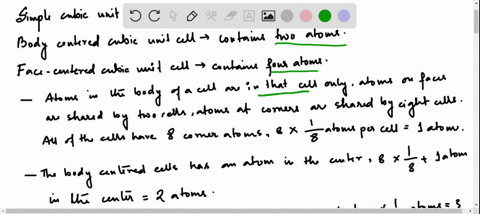 Simple cubic unit
Body centered cubic unit cell → contains two atoms.
Face-centered cubic unit cell → contains four atoms.
— Atoms in the body of a cell are in that cell only, atoms on faces
are shared by two cells, atoms at corners are shared by eight cells.
All of the cells have 8 corner atoms, 8 × 1/8 atoms per cell = 1 atom.
— The body centered cells has an atom in the center, 8 × 1/8 + 1 atom
in the center = 2 atoms.
atoms = 3